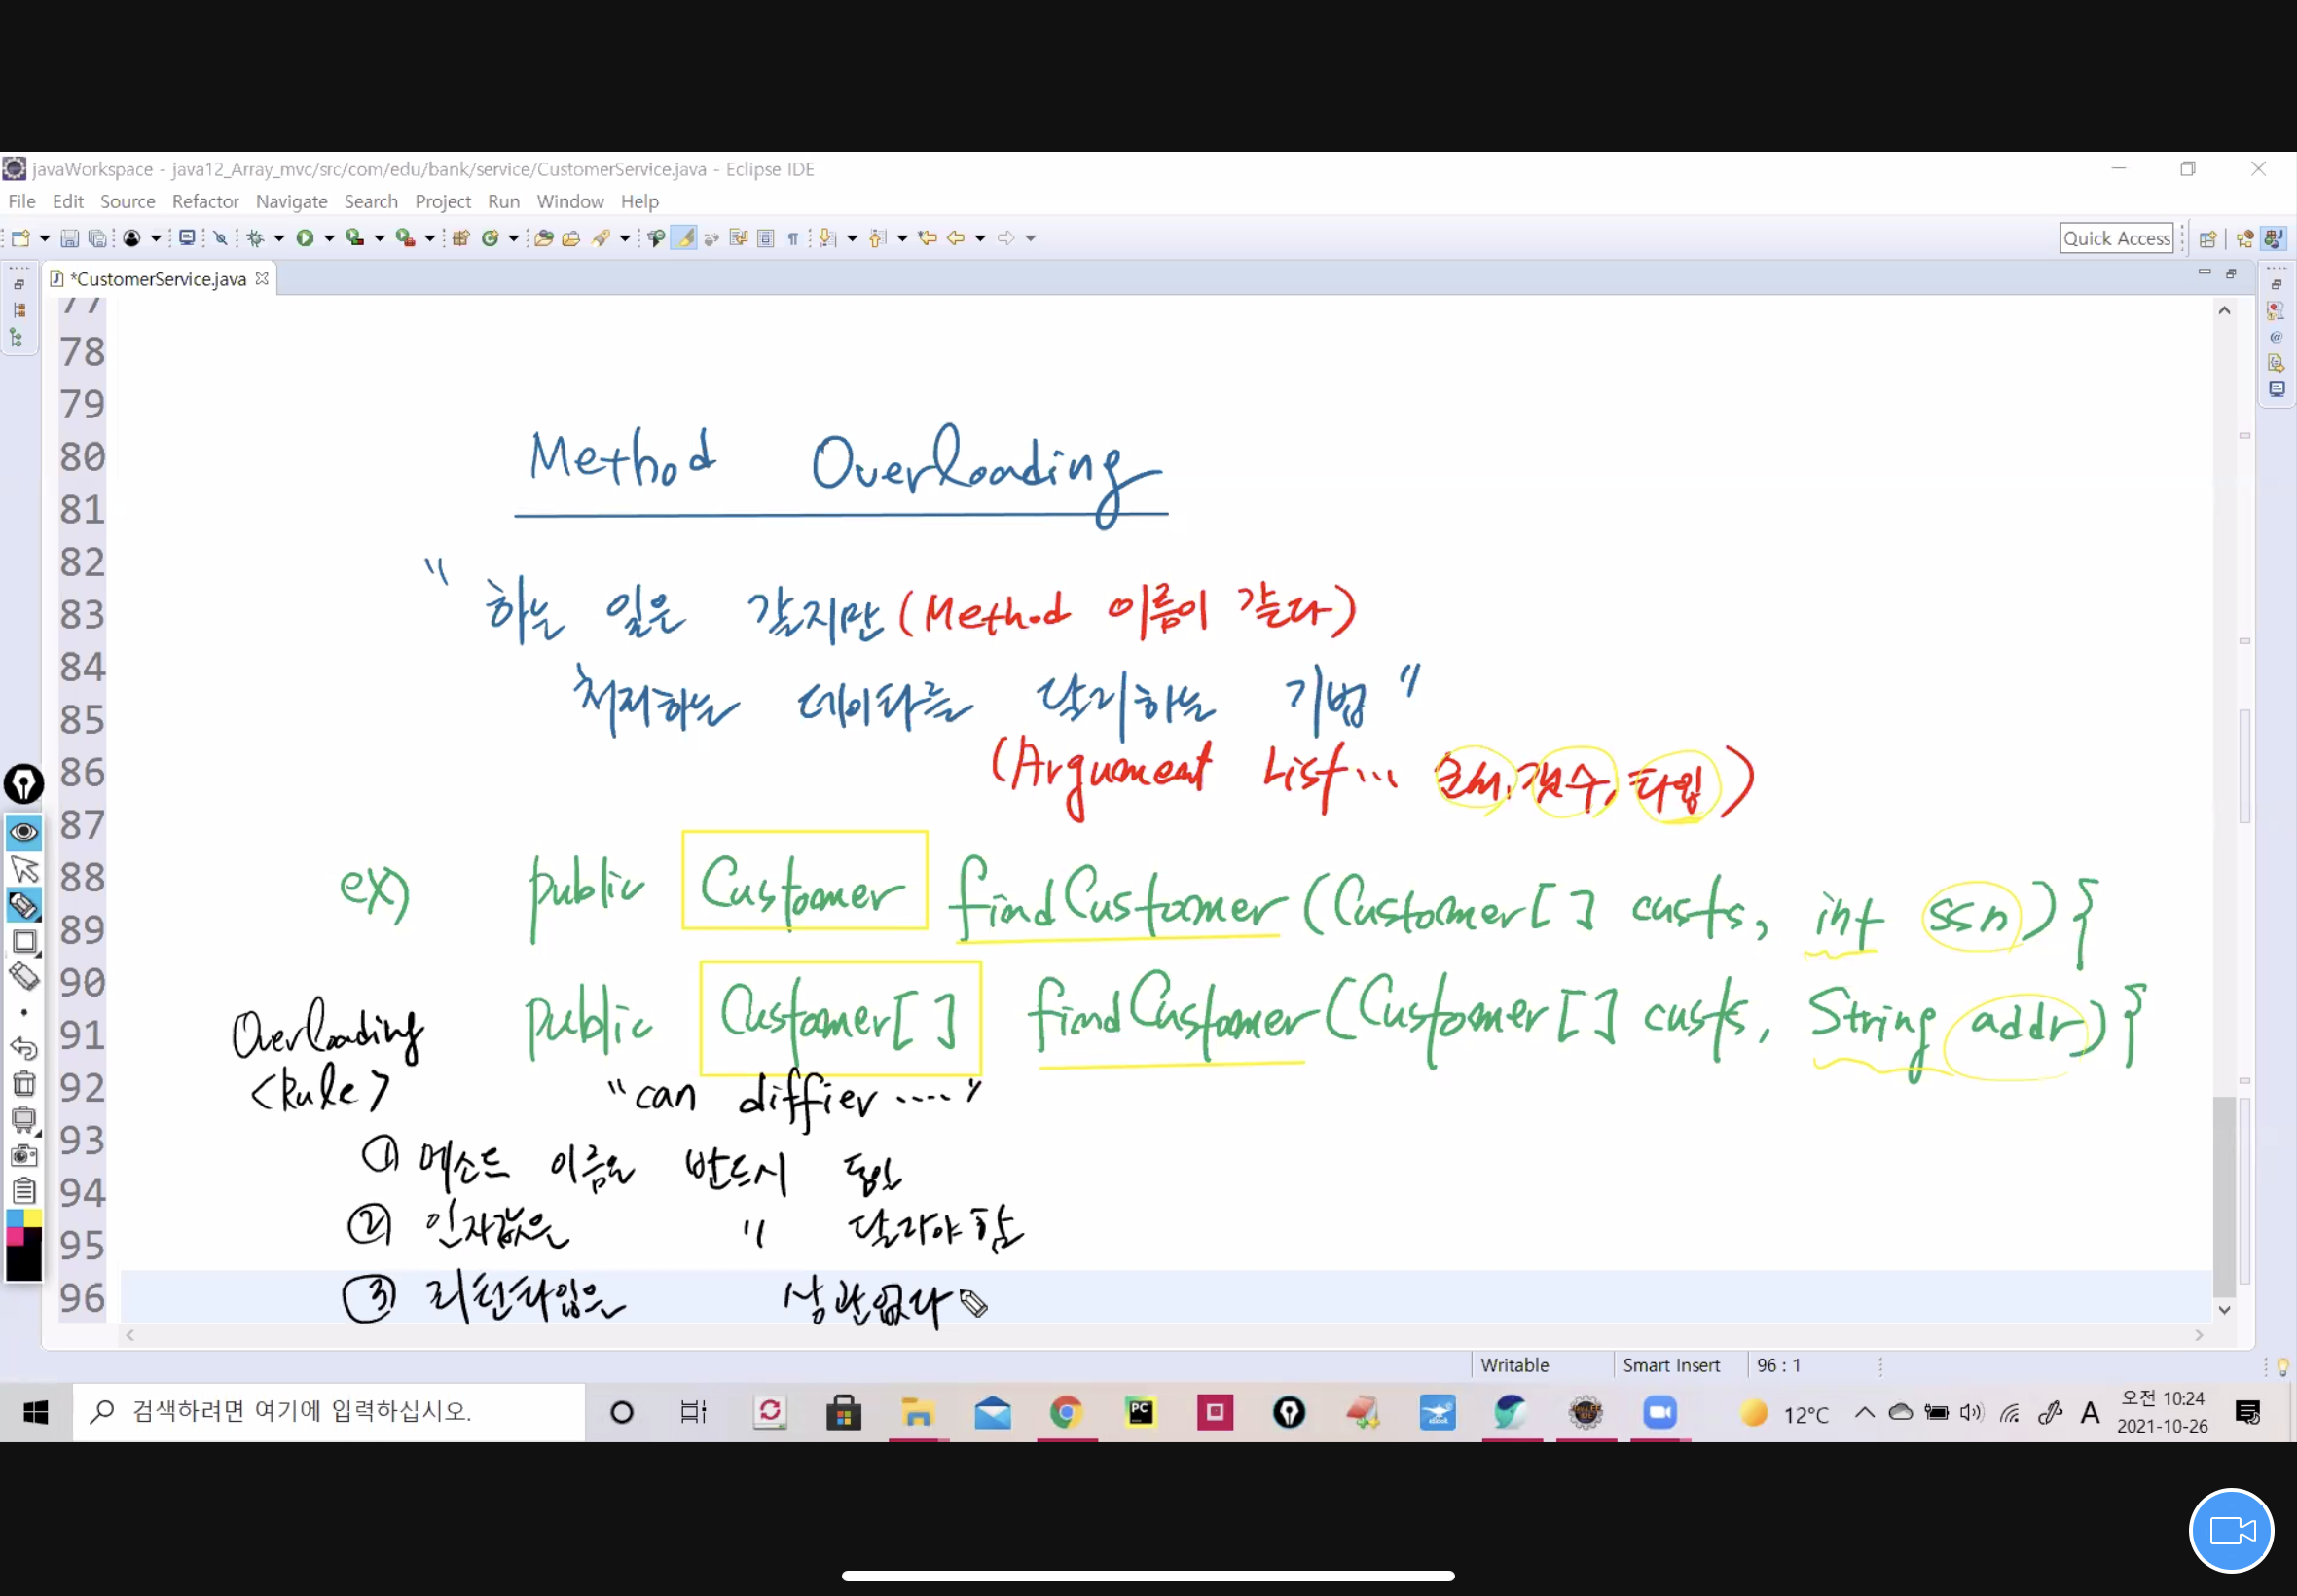 javaWorkspace - java12_Array_mvc/src/com/edu/bank/service/CustomerService.java - Eclipse IDE
File Edit Source Refactor Navigate Search Project Run Window Help
Quick Access
*CustomerService.java
77
78
79
80
Method Overloading
81
82
83
" 하는 일은 같지만 (Method 이름이 같다)
84
처리하는 데이타를 달리하는 기법 "
85
86
(Argument List... 순서, 갯수, 타입)
87
88
ex) public Customer findCustomer (Customer[] custs, int ssn) {
89
90
91
public Customer[] findCustomer (Customer[] custs, String addr) }
Overloading
92
<Rule> "can diffier ...."
93
① 메소드 이름은 반드시 동일
94
② 인자값은 " 달라야 함
95
96
③ 리턴타입은 상관없다
Writable Smart Insert 96 : 1
검색하려면 여기에 입력하십시오.
PC
12°C
A
오전 10:24
2021-10-26